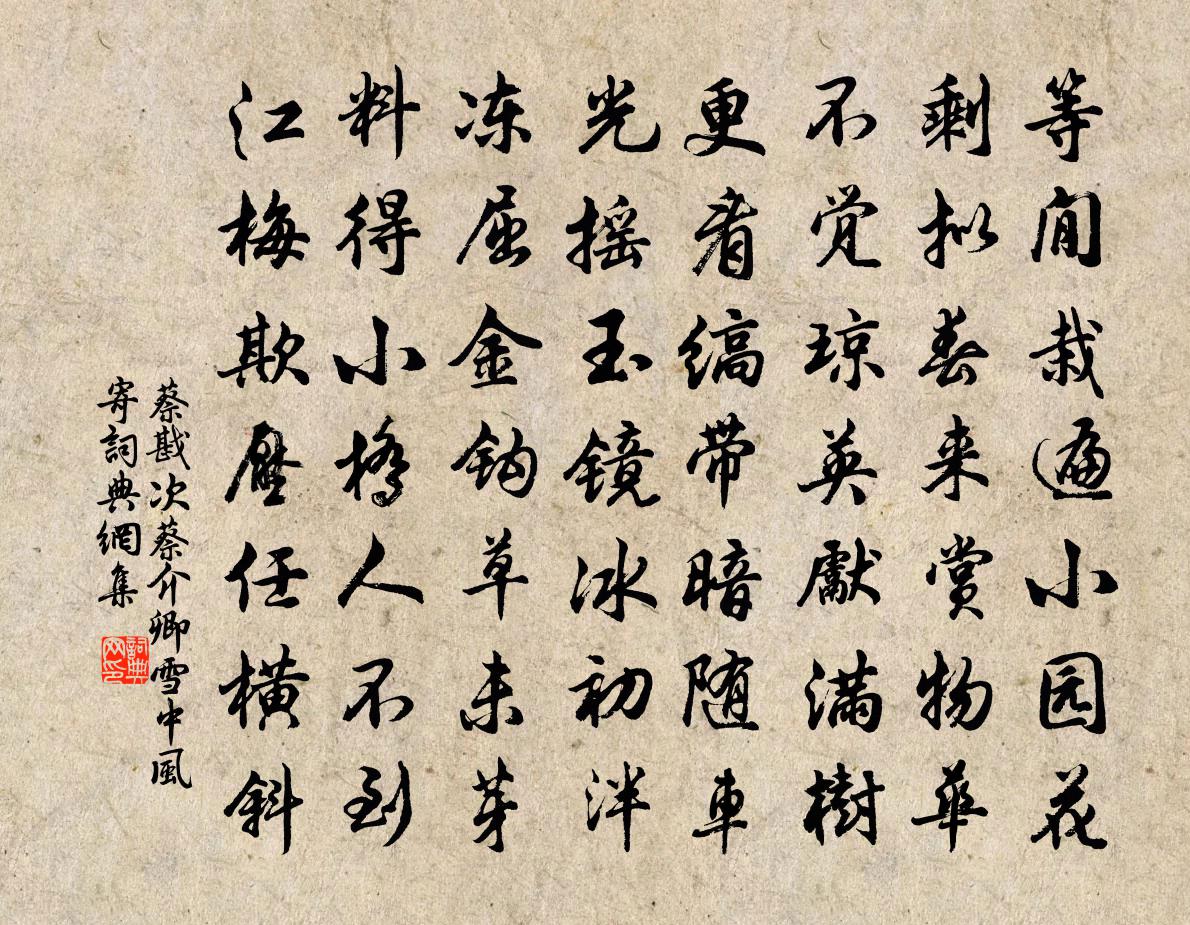 等闲栽遍小园花
剩拟春来赏物华
不觉琼英獻满樹
更看缟带暗随車
光摇玉镜冰初泮
冻屈金钩草未芽
料得小橋人不到
江梅欺壓任橫斜
蔡戡次蔡介卿雪中風
寄詞典網集
詞典网印